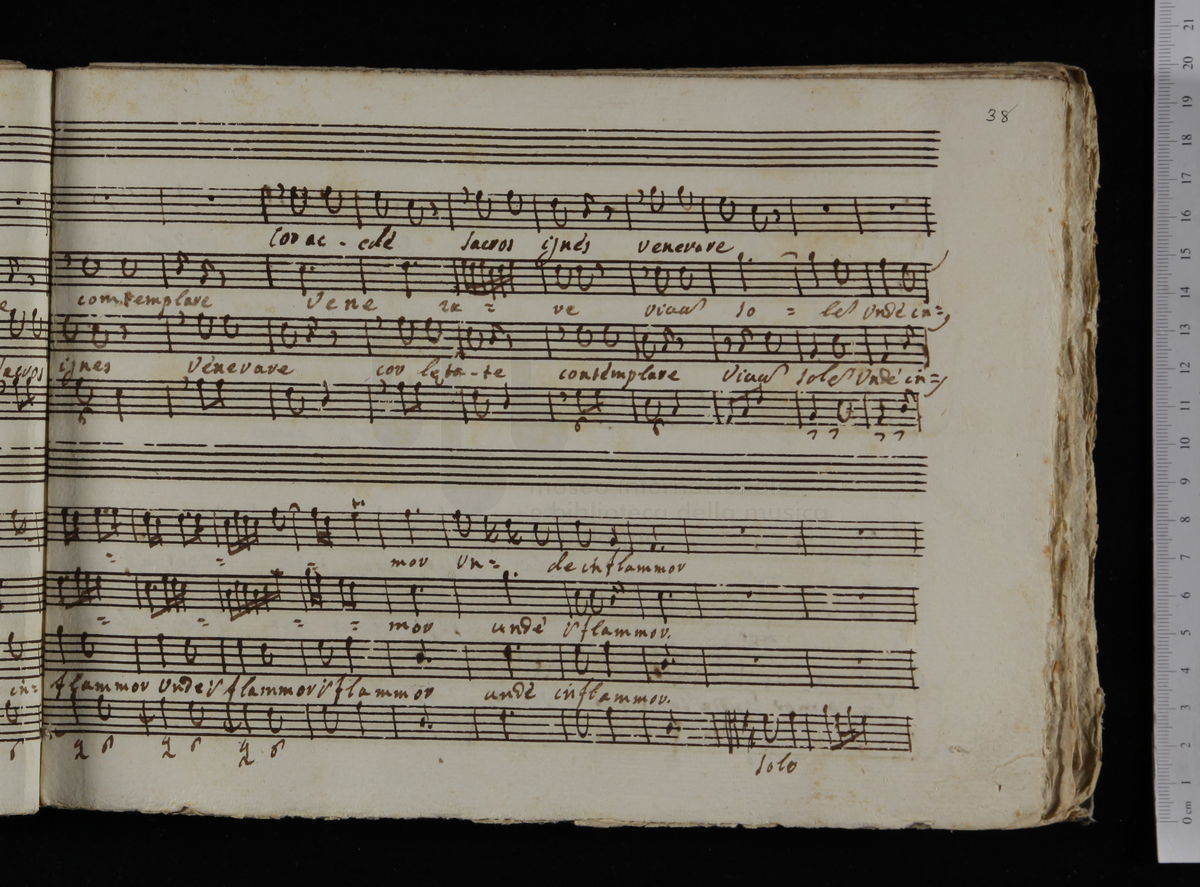 38
cor ac - cede sacros ignes venerare
contemplare Vene ra = ve vivas so = les unde in=
sacros ignes venerare cor leta-te contemplare vivas soles unde in=
6 6 6
7 7 7 7
= = = mor un= de inflammor
= = = = mor unde iflammor.
in= flammor unde iflammor iflammor unde inflammor.
6 6 6 6
solo
museo internazionale
e biblioteca della musica
0 cm 1 2 3 4 5 6 7 8 9 10 11 12 13 14 15 16 17 18 19 20 21